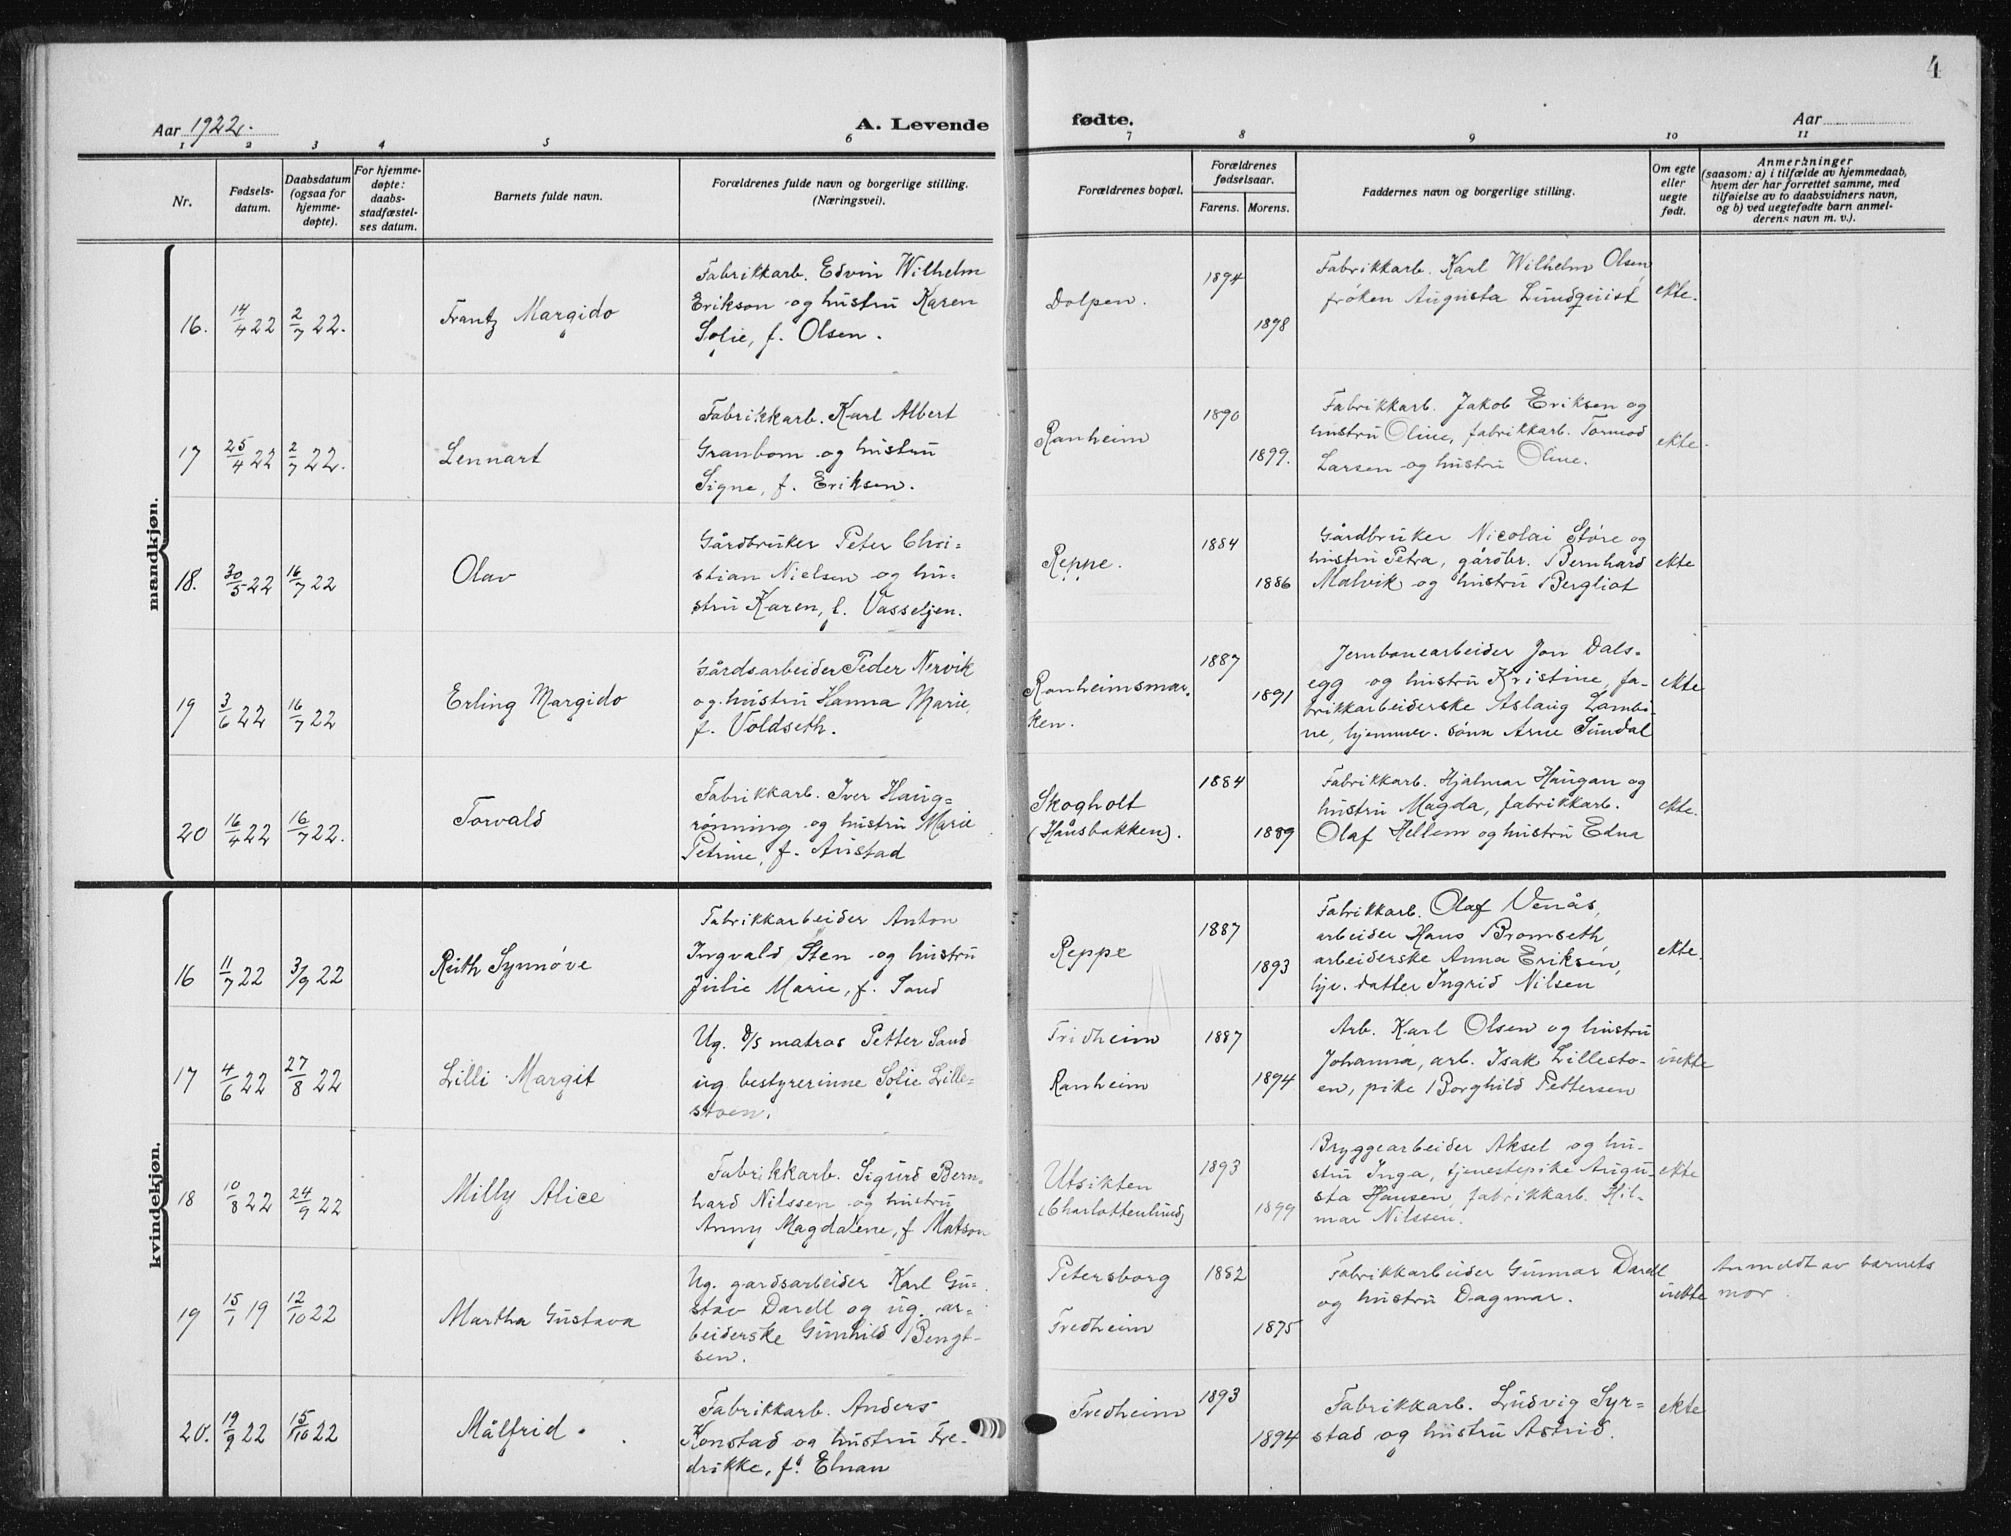 4
Aar 1922.
A. Levende
fødte.
Aar
1 2 3 4 5 6 7 8 9 10 11
Nr.
Fødsels-
datum.
Daabsdatum
(ogsaa for
hjemme-
døpte).
For hjemme-
døpte:
daabs-
stadfæstel-
ses datum.
Barnets fulde navn.
Forældrenes fulde navn og borgerlige stilling.
(Næringsvei).
Forældrenes bopæl.
Forældrenes
fødselsaar.
Farens. Morens.
Faddernes navn og borgerlige stilling.
Om egte
eller
uegte
født.
Anmerkninger
(saasom: a) i tilfælde av hjemmedaab,
hvem der har forrettet samme, med
tilføielse av to daabsvidners navn,
og b) ved uegtefødte barn anmel-
derens navn m. v.).
mandkjøn.
16. 14/4 22 2/7 22. Frantz Margido
Fabrikkarb. Edvin Wilhelm
Erikson og hustru Karen
Sofie, f. Olsen.
Dolpen.
1894
1898
Fabrikkarb. Karl Wilhelm Olsen
frøken Augusta Lundquist
ekte.
17 25/4 22 2/7 22. Lennart
Fabrikkarb. Karl Albert
Granbom og hustru
Signe, f. Eriksen.
Ranheim
1890
1899.
Fabrikkarb. Jakob Eriksen og
hustru Oline, fabrikkarb. Tormod
Larsen og hustru Oline.
ekte.
18. 30/5 22 16/7 22 Olav
Gårdbruker Peter Chri-
stian Nielsen og hu-
stru Karen, f. Vasseljen.
Reppe.
1884
1886
Gårdbruker Nicolai Støre og
hustru Petra, gårdbr. Bernhard
Malvik og hustru Bergliot
ekte
19 3/6 22 16/7 22 Erling Margido
Gårdsarbeider Peder Nervik
og hustru Hanna Marie,
f. Voldseth.
Ranheimsmar-
ken.
1887
1891
Jernbanearbeider Jon Dals-
egg og hustru Kristine, fa-
brikkarbeiderske Aslaug Lambi-
ne, hjemmev. sønn Arne Sundal
ekte
20 16/4 22 16/7 22. Torvald
Fabrikkarb. Iver Haug-
rønning og hustru Marie
Petrine, f. Aristad
Skogholt
(Håusbakken).
1884
1889
Fabrikkarb. Hjalmar Haugan og
hustru Magda, fabrikkarb.
Olaf Hellem og hustru Edna
ekte.
kvindekjøn.
16 11/7 22 3/9 22 Ruth Synnøve
Fabrikkarbeider Anton
Ingvald Sten og hustru
Julie Marie, f. Sand
Reppe
1887
1893
Fabrikkarb. Olaf Venås,
arbeider Hans Bromseth,
arbeiderske Anna Eriksen,
hjv. datter Ingrid Nilsen
ekte.
17 4/6 22 27/8 22 Lilli Margit
Ug. d/s matros Petter Sand
ug bestyrerinne Sofie Lille-
stoen.
Fridheim
Ranheim
1887
1894
Arb. Karl Olsen og hustru
Johanna, arb. Isak Lillesto-
en, pike Borghild Pettersen
uekte
18 10/8 22 24/9 22 Milly Alice
Fabrikkarb. Sigurd Bern-
hard Nilssen og hustru
Anny Magdalene, f Matson
Utsikten
(Charlottenlund)
1893
1899
Bryggearbeider Aksel og hu-
stru Inga, tjenestepike Augu-
sta Hansen, fabrikkarb. Hil-
mar Nilssen.
ekte
19 15/1 19 12/10 22 Martha Gustava
Ug. gardsarbeider Karl Gu-
stav Darell og ug. ar-
beiderske Gunhild Bengt-
sen.
Petersborg
Fredheim
1882
1875
Fabrikkarbeider Gunnar Darell
og hustru Dagmar.
uekte
Anmeldt av barnets
mor.
20. 19/9 22 15/10 22 Målfrid.
Fabrikkarb. Anders
Konstad og hustru Fre-
drikke, f. Elnan
Fredheim
1893
1894
Fabrikkarb. Ludvig Syr-
stad og hustru Astrid.
ekte